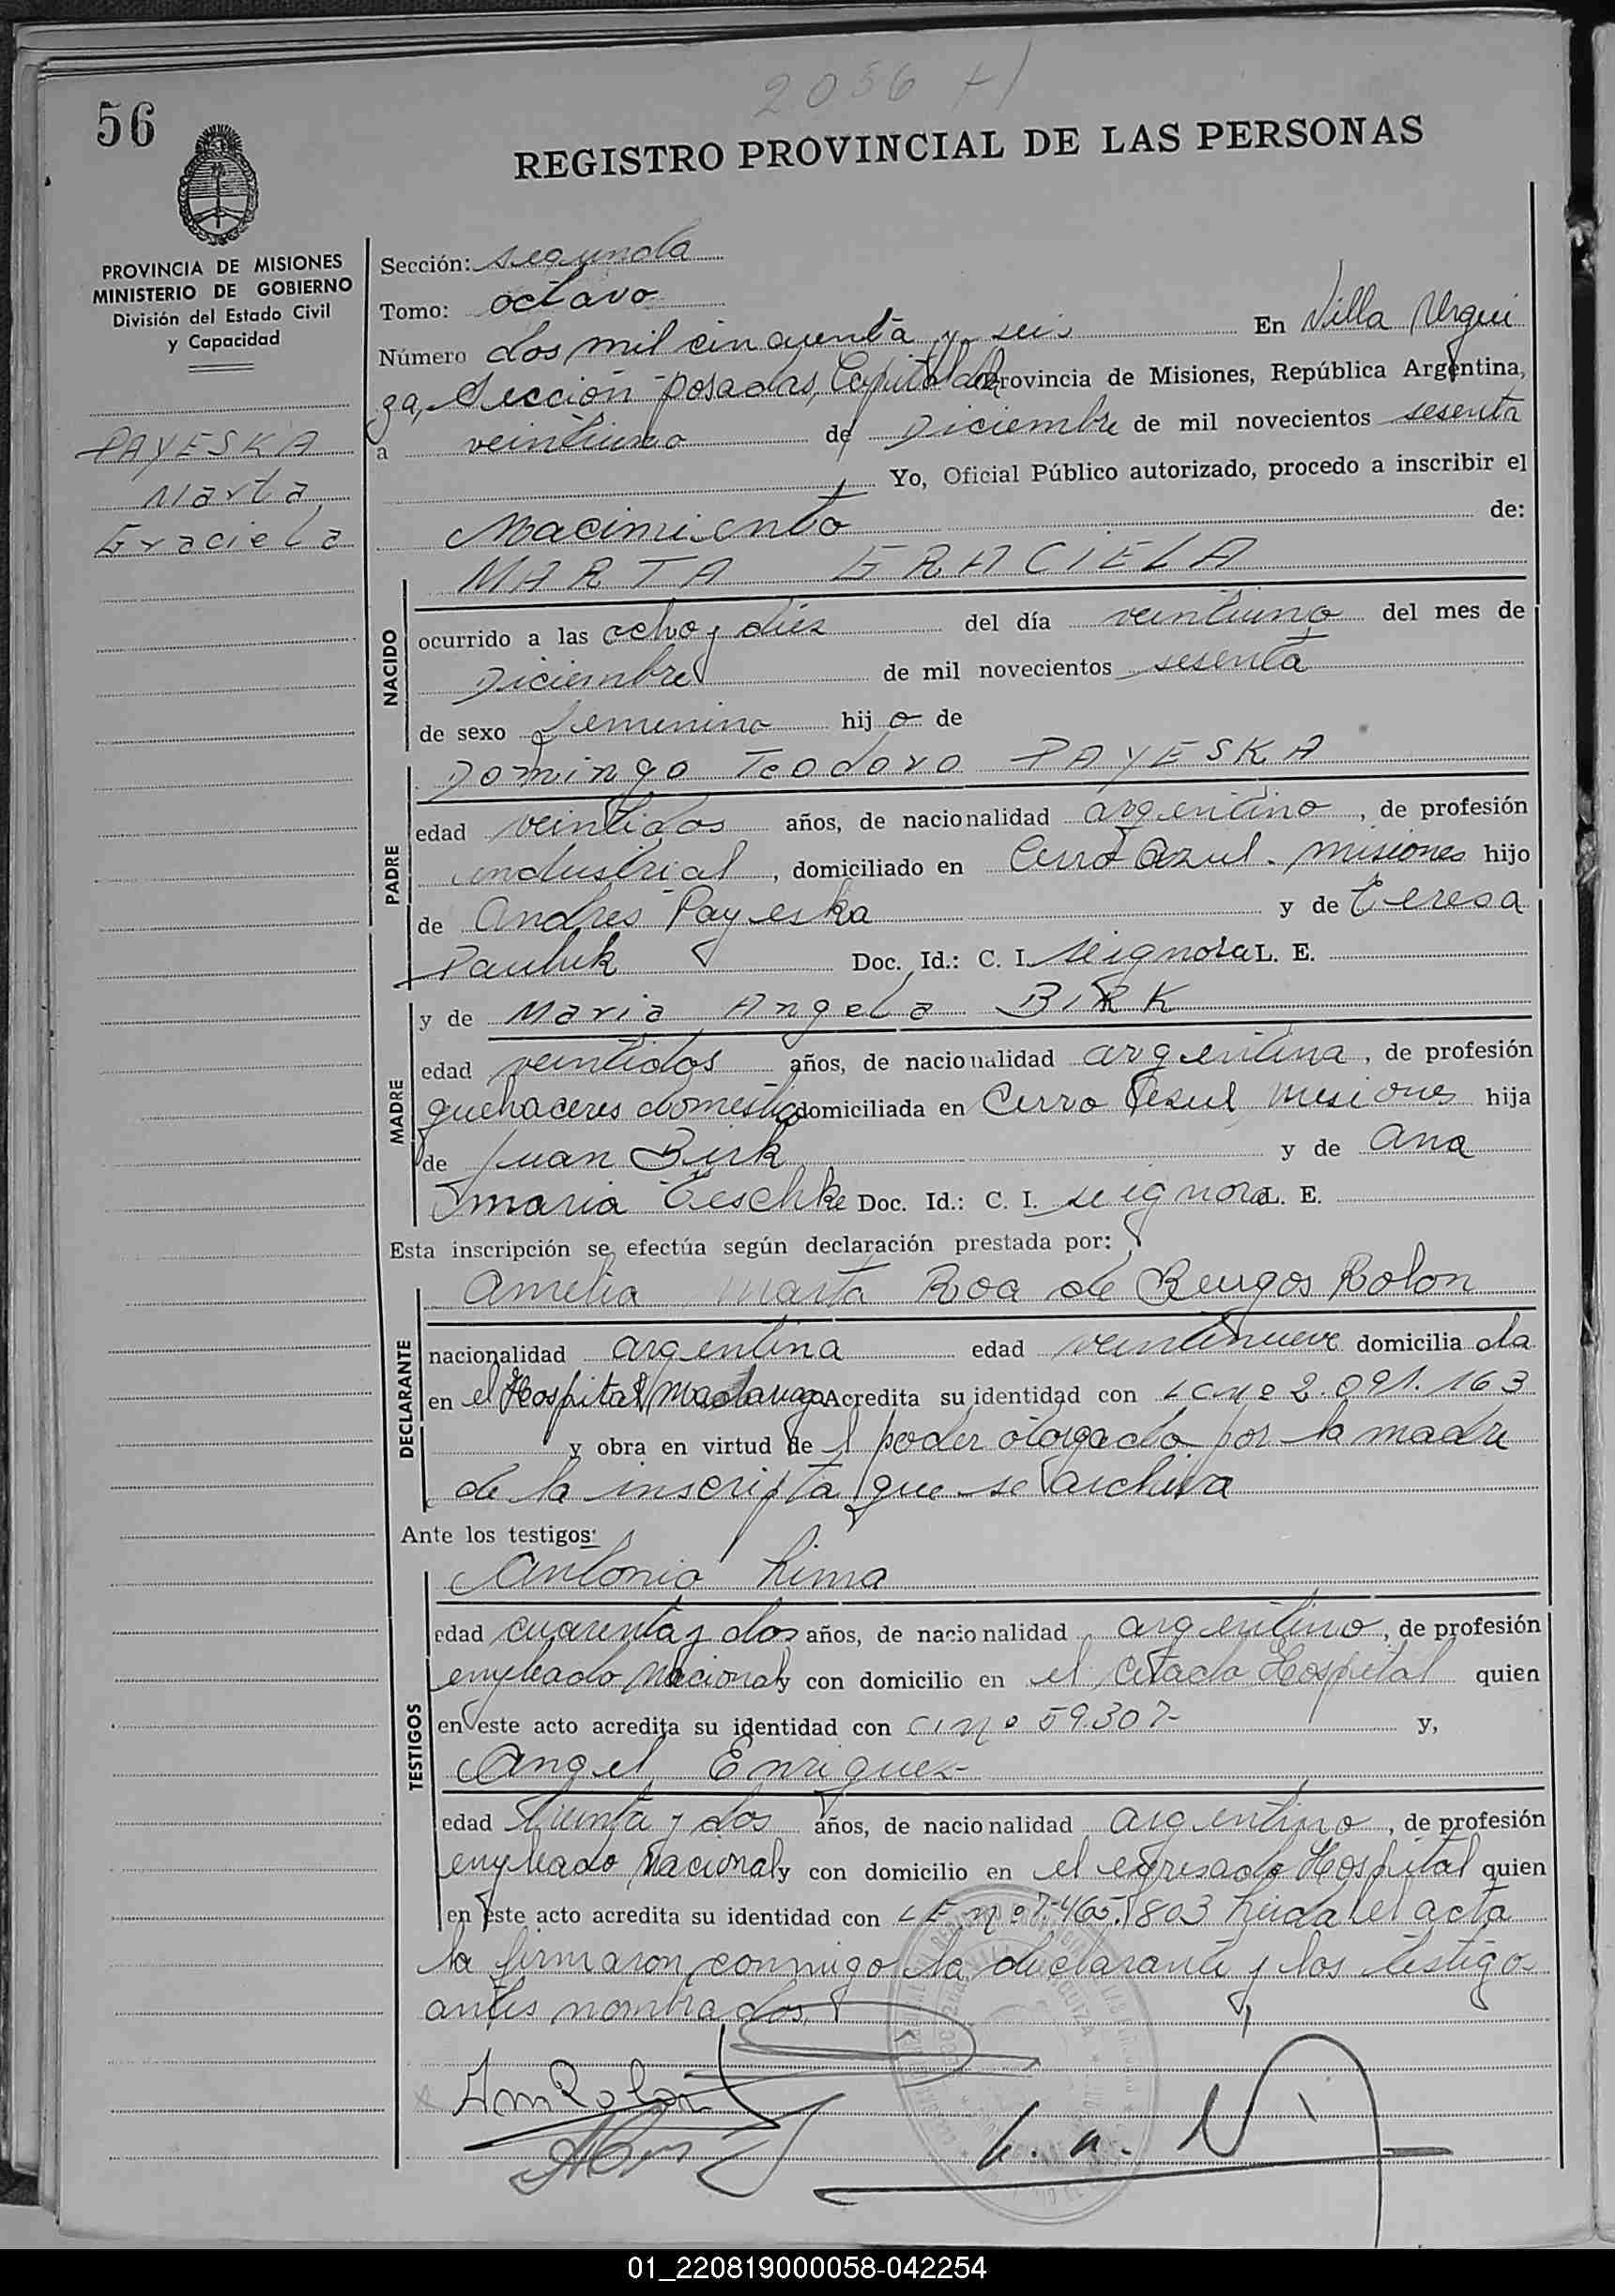 2056 H
56
REGISTRO PROVINCIAL DE LAS PERSONAS
PROVINCIA DE MISIONES
MINISTERIO DE GOBIERNO
División del Estado Civil
y Capacidad
PAYESKA
Marta
Graciela
Sección: segunda
Tomo: octavo
Número dos mil cincuenta y seis En Villa Urqui
za, Sección Posadas, Capital de la Provincia de Misiones, República Argentina,
a veintiuno de Diciembre de mil novecientos sesenta
Yo, Oficial Público autorizado, procedo a inscribir el
Nacimiento de:
MARTA GRACIELA
NACIDO
ocurrido a las ocho y diez del día veintiuno del mes de
Diciembre de mil novecientos sesenta
de sexo femenino hij o de
Domingo Teodoro PAYESKA
PADRE
edad veintidos años, de nacionalidad argentino, de profesión
industrial, domiciliado en Cerro Azul - Misiones hijo
de Andres Payeska y de Teresa
Pauluk Doc. Id.: C. I. se ignora L. E.
MADRE
y de Maria Angela BIRK
edad veintidos años, de nacionalidad argentina, de profesión
quehaceres domestico domiciliada en Cerro Azul Misiones hija
de Juan Birk y de Ana
Maria Teschke Doc. Id.: C. I. se ignora L. E.
Esta inscripción se efectúa según declaración prestada por:
DECLARANTE
Amelia Marta Roa de Burgos Rolon
nacionalidad argentina edad veintinueve domicilia da
en el Hospital Madariaga Acredita su identidad con L C Nº 2.091.163
y obra en virtud de l poder otorgado por la madre
de la inscripta que se archiva
Ante los testigos:
TESTIGOS
Antonio Lima
edad cuarenta y dos años, de nacionalidad argentino, de profesión
empleado Nacional y con domicilio en el citado Hospital quien
en este acto acredita su identidad con C I Nº 59.307- y,
Angel Enriquez-
edad treinta y dos años, de nacionalidad argentino, de profesión
empleado Nacional y con domicilio en el expresado Hospital quien
en este acto acredita su identidad con L E Nº 7.465.803 Leida el acta
la firmaron conmigo la declarante y los testigos
antes nombrados
AmRolon
01_220819000058-042254